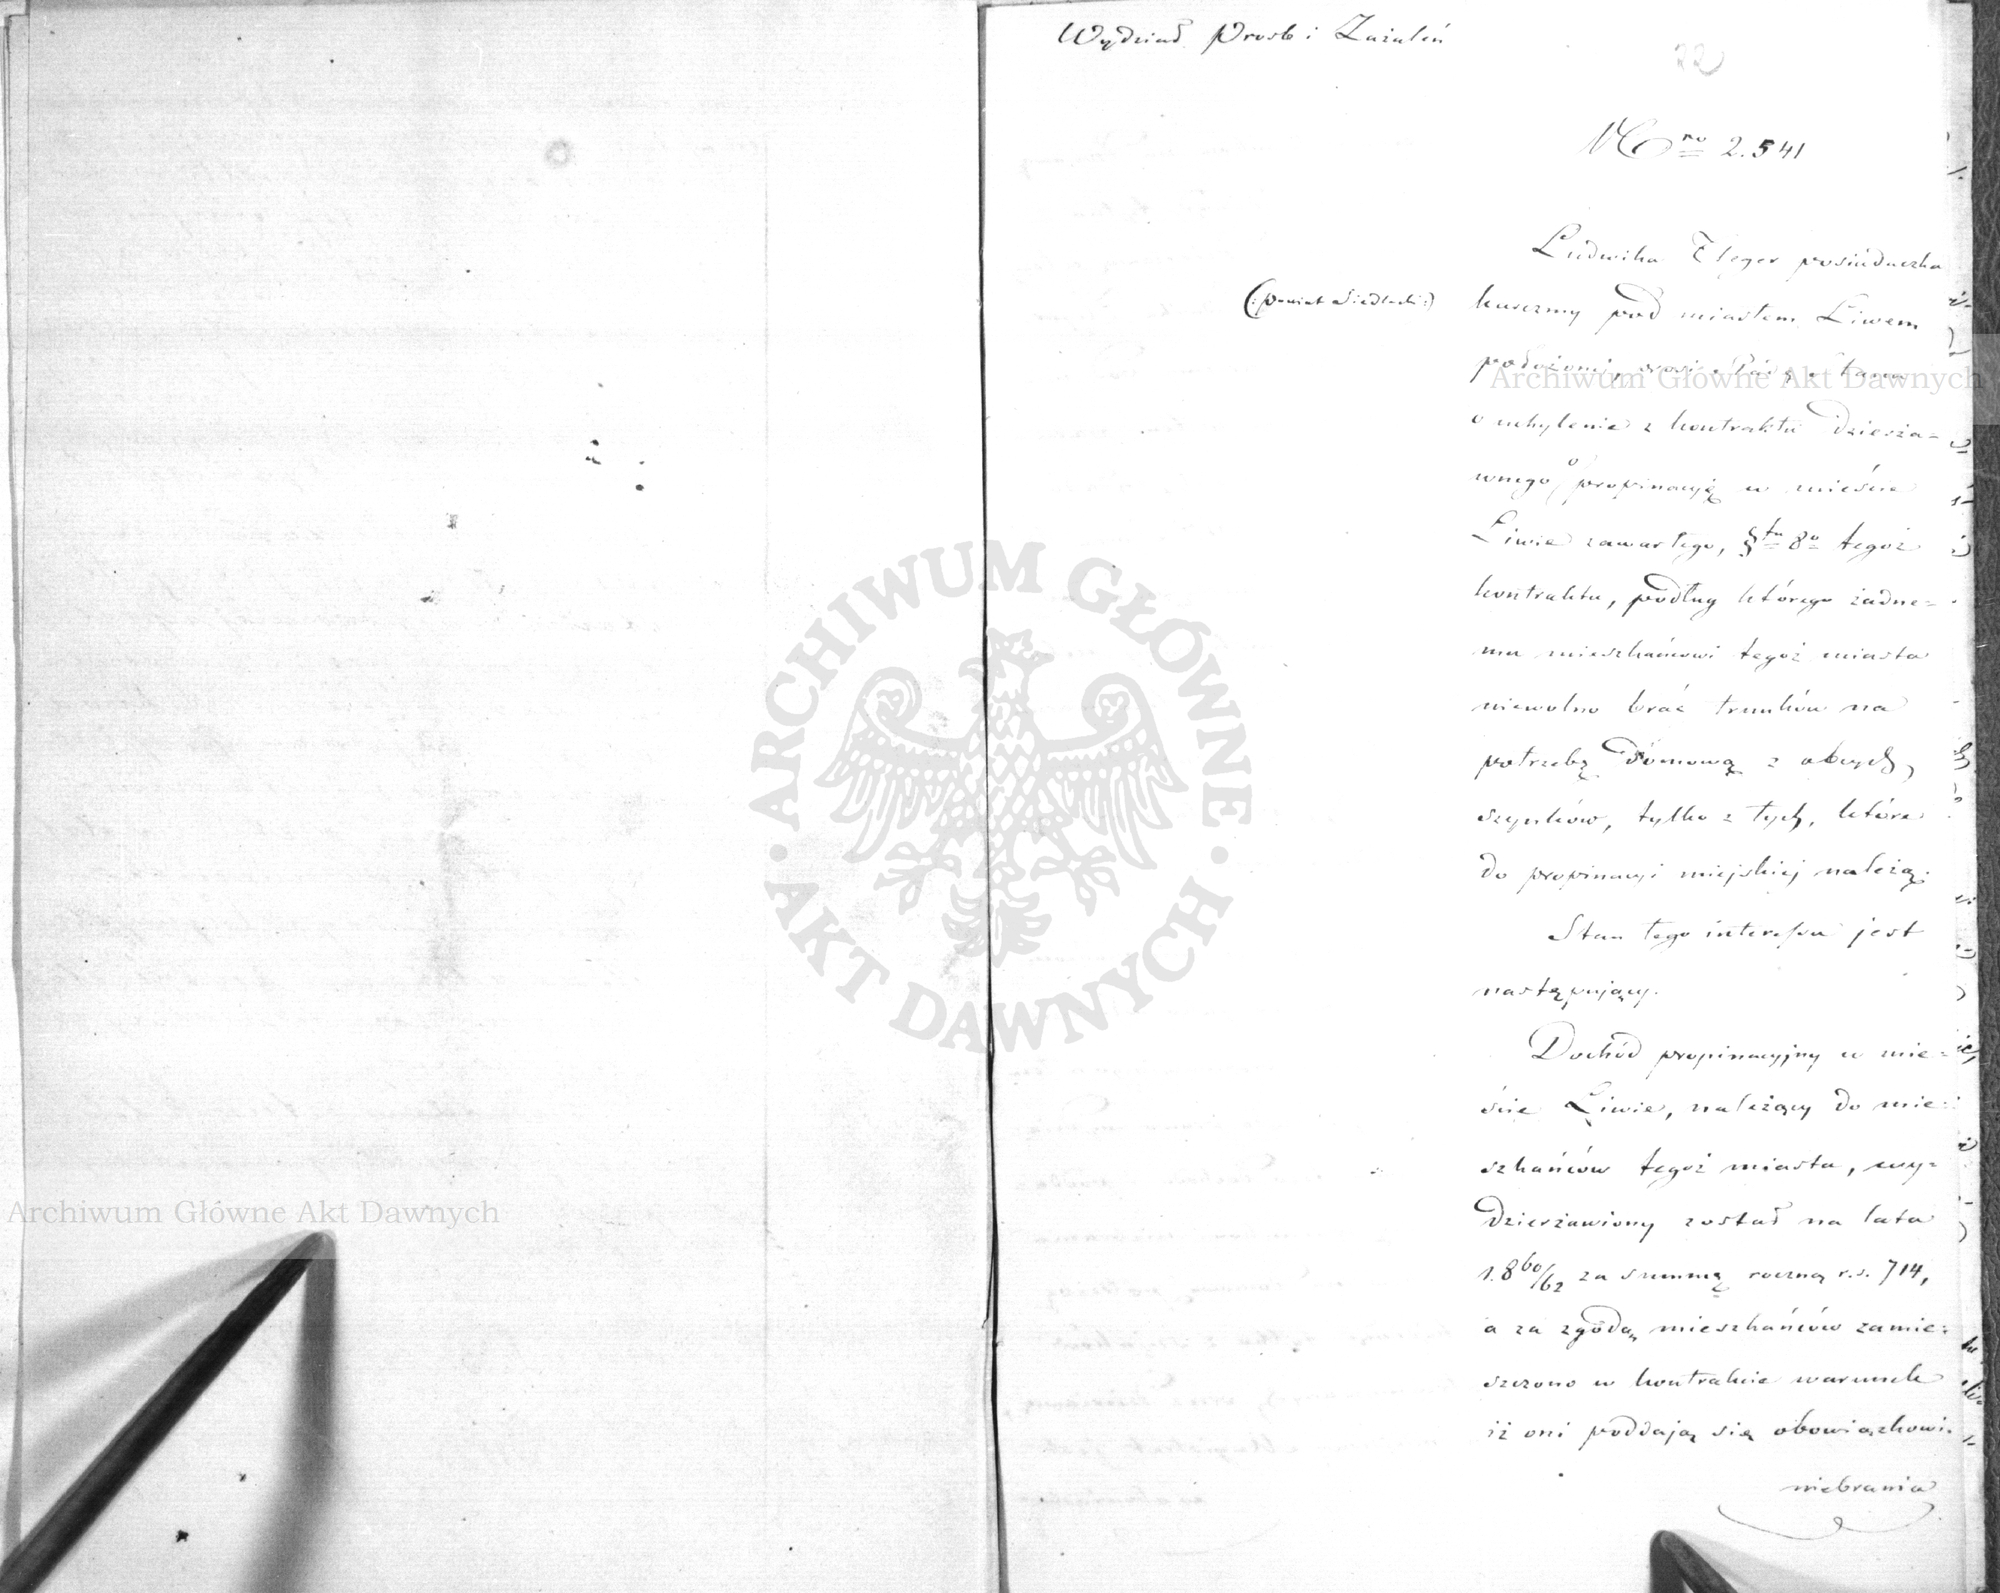 Wydział Prosb i Zażaleń
22
Nro 2.541
Ludwika posiadaczka
(:powiat Siedlecki:)
karczmy pod miastem Liwem
położonej, prosi Radę Stanu
o uchylenie z kontraktu dzierża=
wnego o propinacyję w mieście
Liwie zawartego, §tu 8o tegoż
kontraktu, podług którego żadne=
mu mieszkańcowi tegoż miasta
niewolno brać trunków na
potrzebę domową z obcych
szynków, tylko z tych, które
do propinacyi miejskiej należą.
Stan tego interesu jest
następujący.
Dochód propinacyjny w mie=
ście Liwie, należący do mie=
szkańców tegoż miasta, wy=
dzierżawiony został na lata
1.860/62 za summę roczną r.s. 714,
a za zgodą mieszkańców zamie=
szczono w kontrakcie warunek
iż oni poddają się obowiązkowi
niebrania
Archiwum Główne Akt Dawnych
Archiwum Główne Akt Dawnych
ARCHIWUM GŁÓWNE · AKT DAWNYCH ·